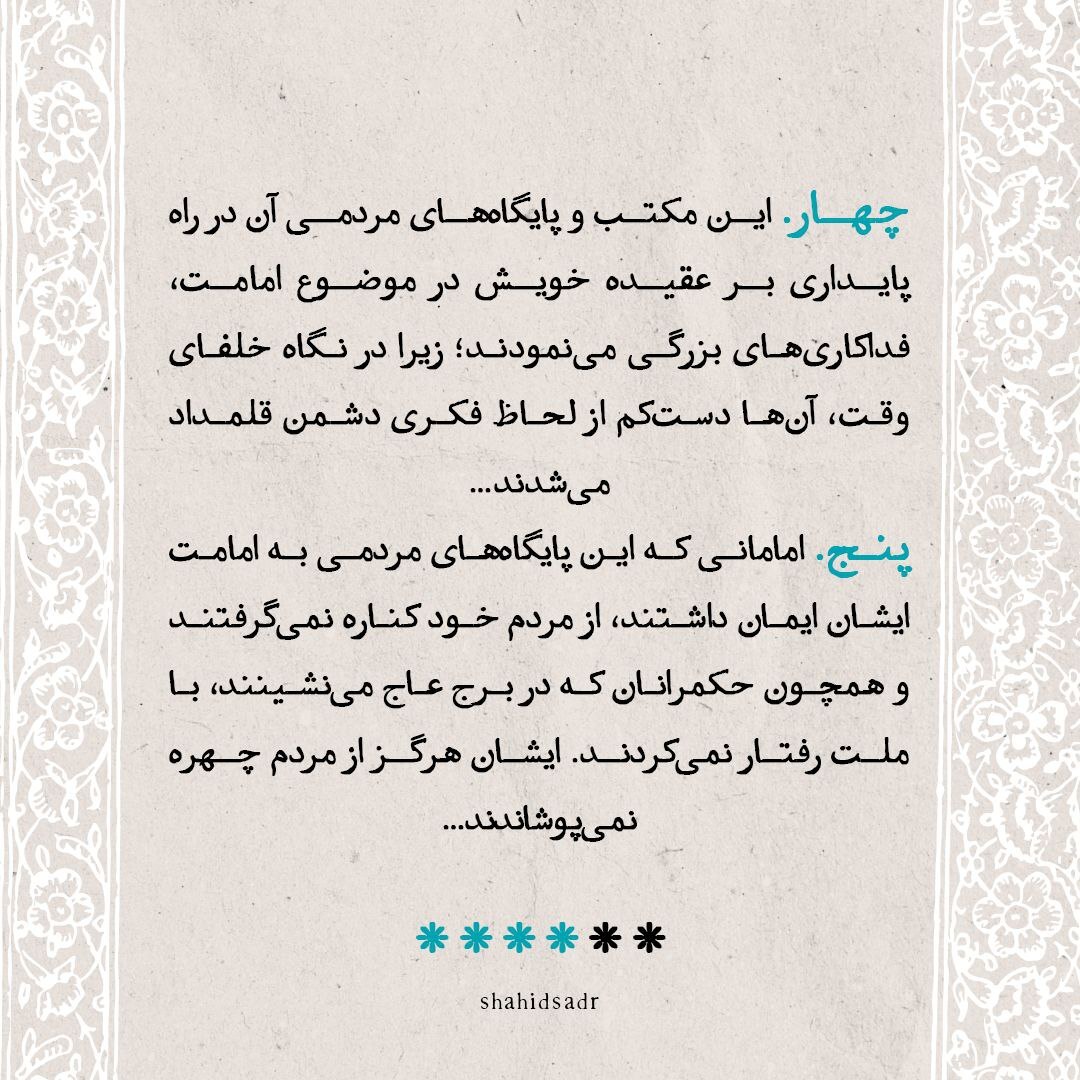 چهار. این مکتب و پایگاه‌های مردمی آن در راه
پایداری بر عقیده خویش در موضوع امامت،
فداکاری‌های بزرگی می‌نمودند؛ زیرا در نگاه خلفای
وقت، آن‌ها دست‌کم از لحاظ فکری دشمن قلمداد
می‌شدند...
پنج. امامانی که این پایگاه‌های مردمی به امامت
ایشان ایمان داشتند، از مردم خود کناره نمی‌گرفتند
و همچون حکمرانان که در برج عاج می‌نشینند، با
ملت رفتار نمی‌کردند. ایشان هرگز از مردم چهره
نمی‌پوشاندند...
shahidsadr